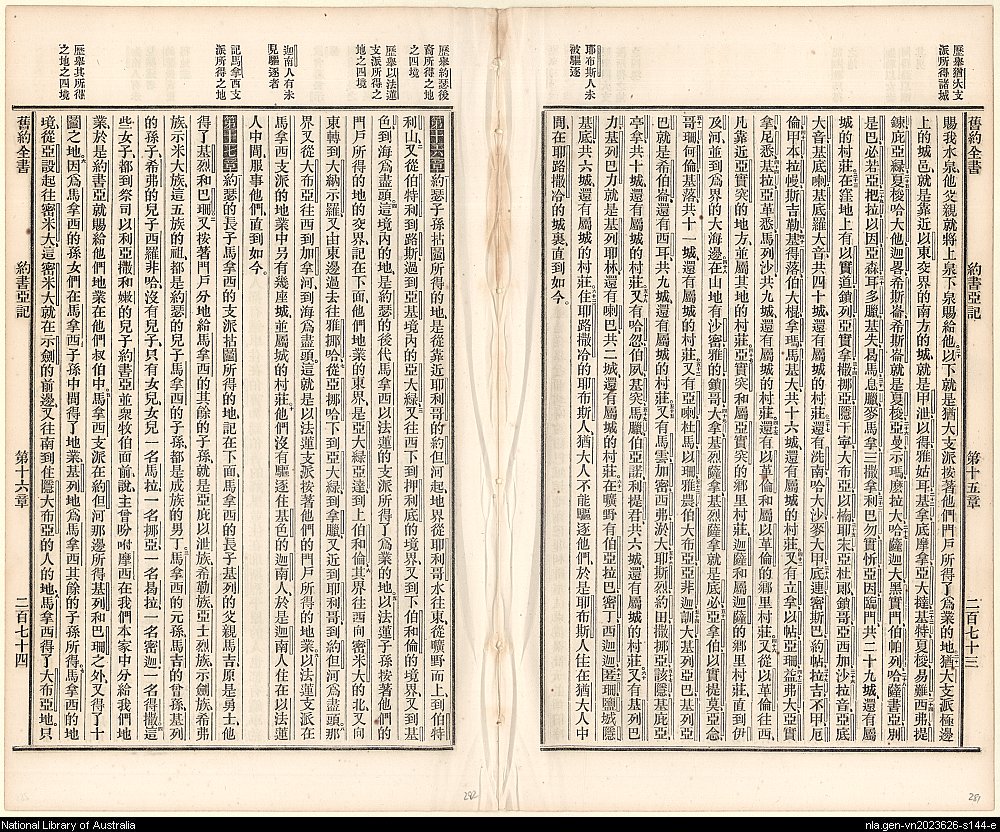 歷舉猶大支
派所得諸城
耶布斯人未
被驅逐
舊約全書
約書亞記
第十五章
二百七十三
賜我水泉他父親就將上泉下泉賜給他以下就是猶大支派按著他們門戶所得了為業的地猶大支派極邊
上的城邑就是靠近以東交界的南方的城就是甲泄以得雅姑耳基拿底摩拿亞大撻基特夏梭易難西弗提
鍊庇亞綠夏梭哈大他迦畧希斯崙希斯崙就是夏梭亞曼示瑪麼拉大哈薩迦大黑實門伯帕列哈薩書亞別
是巴必若亞巴拉以因亞森耳多臘基失曷馬息臘麥馬拿三撒拿利巴勿實忻亞因臨門共二十九城還有屬
城的村莊在窪地上有以實道鎖列亞實拿撒挪亞隱干寧大布亞以楠耶末亞杜郿鎖哥亞西加沙拉音亞底
大音基底喇基底羅大音共四十城還有屬城的村莊還有洗南哈大沙麥大甲底連密斯巴約帖拉吉不甲厄
倫甲本拉幔斯吉勒基得落伯大棍拿瑪馬基大共十六城還有屬城的村莊又有立拿以帖亞珊益弗大亞實
拿尼悉基拉亞革悉馬列沙共九城還有屬城的村莊還有以革倫和屬以革倫的鄉里村莊又從以革倫往西
凡靠近亞實突的地方並屬其地的村莊亞實突和屬亞實突的鄉里村莊迦薩和屬迦薩的鄉里村莊直到伊
及河並到為界的大海邊在山地有沙密雅的鎖哥大拿基烈薩拿基烈薩拿就是底必亞拿伯以實提莫亞念
哥珊何倫基落共十一城還有屬城的村莊又有亞喇杜馬以珊雅農伯大布亞亞非迦訓大基列亞巴基列亞
巴就是希伯崙還有西耳共九城還有屬城的村莊又有馬雲加密西弗淤大耶斯烈約田撒挪亞該隱基庇亞
亭拿共十城還有屬城的村莊又有哈忽伯夙基突馬臘伯亞諾利提君共六城還有屬城的村莊又有基列巴
力基列巴力就是基列耶林還有拉巴共二城還有屬城的村莊在曠野有伯亞拉巴密丁西迦迦匿珊鹽城隱
基底共六城還有屬城的村莊住耶路撒冷的耶布斯人猶大人不能驅逐他們於是耶布斯人住在猶大人中
間在耶路撒冷的城裏直到如今
歷舉約瑟後
裔所得之地
之四境
歷舉以法蓮
支派所得之
地之四境
迦南人有未
見驅逐者
記馬拿西支
派所得之地
歷舉其所得
之地之四境
第十六章約瑟子孫拈鬮所得的地是從靠近耶利哥的約但河起地界從耶利哥水往東從曠野而上到伯特
利山又從伯特利到路斯過到亞基境內的亞大綠又往西下到押利底的境界又到下伯和倫的境界又到基
色到海為盡頭這境內的地是約瑟的後代馬拿西以法蓮的支派所得了為業的地以法蓮子孫按著他們的
門戶所得的地的交界記在下面他們地業的東界是亞大綠亞達到上伯和倫其界往西向密米大的北又向
東轉到大納示羅又由東邊過去往雅挪哈從亞挪哈下到亞大綠到拿臘又近到耶利哥到約但河為盡頭那
界又從大布亞往西到加拿河到海為盡頭這就是以法蓮支派按著他們的門戶所得的地業以法蓮支派在
馬拿西支派的地業中另有幾座城並屬城的村莊他們沒有驅逐住基色的迦南人於是迦南人住在以法蓮
人中間服事他們直到如今
第十七章約瑟的長子馬拿西的支派拈鬮所得的地記在下面馬拿西的長子基列的父親馬吉原是勇士他
得了基烈和巴珊又按著門戶分地給馬拿西的其餘的子孫就是亞庇以泄族希勒族亞土烈族示劍族希弗
族示米大族這五族的祖都是約瑟的兒子馬拿西的子孫都是成族的男丁馬拿西的元孫馬吉的曾孫基列
的孫子希弗的兒子西羅非哈沒有兒子只有女兒女兒一名馬拉一名挪亞一名曷拉一名密迦一名得撒這
些女子都到祭司以利亞撒和嫩的兒子約書亞並衆牧伯面前說主曾吩咐摩西在我們本家中分給我們地
業於是約書亞就賜給他們地業在他們叔伯中馬拿西支派在約但河那邊所得基列和巴珊之外又得了十
圖之地因為馬拿西的孫女們在馬拿西子孫中間得了地業基列地為馬拿西其餘的子孫所得馬拿西的地
境從亞設起往密米大這密米大就在示劍的前邊又往南到住隱大布亞的人的地馬拿西得了大布亞地只
舊約全書
約書亞記
第十六章
二百七十四
282
281
National Library of Australia
nla.gen-vn2023626-s144-e